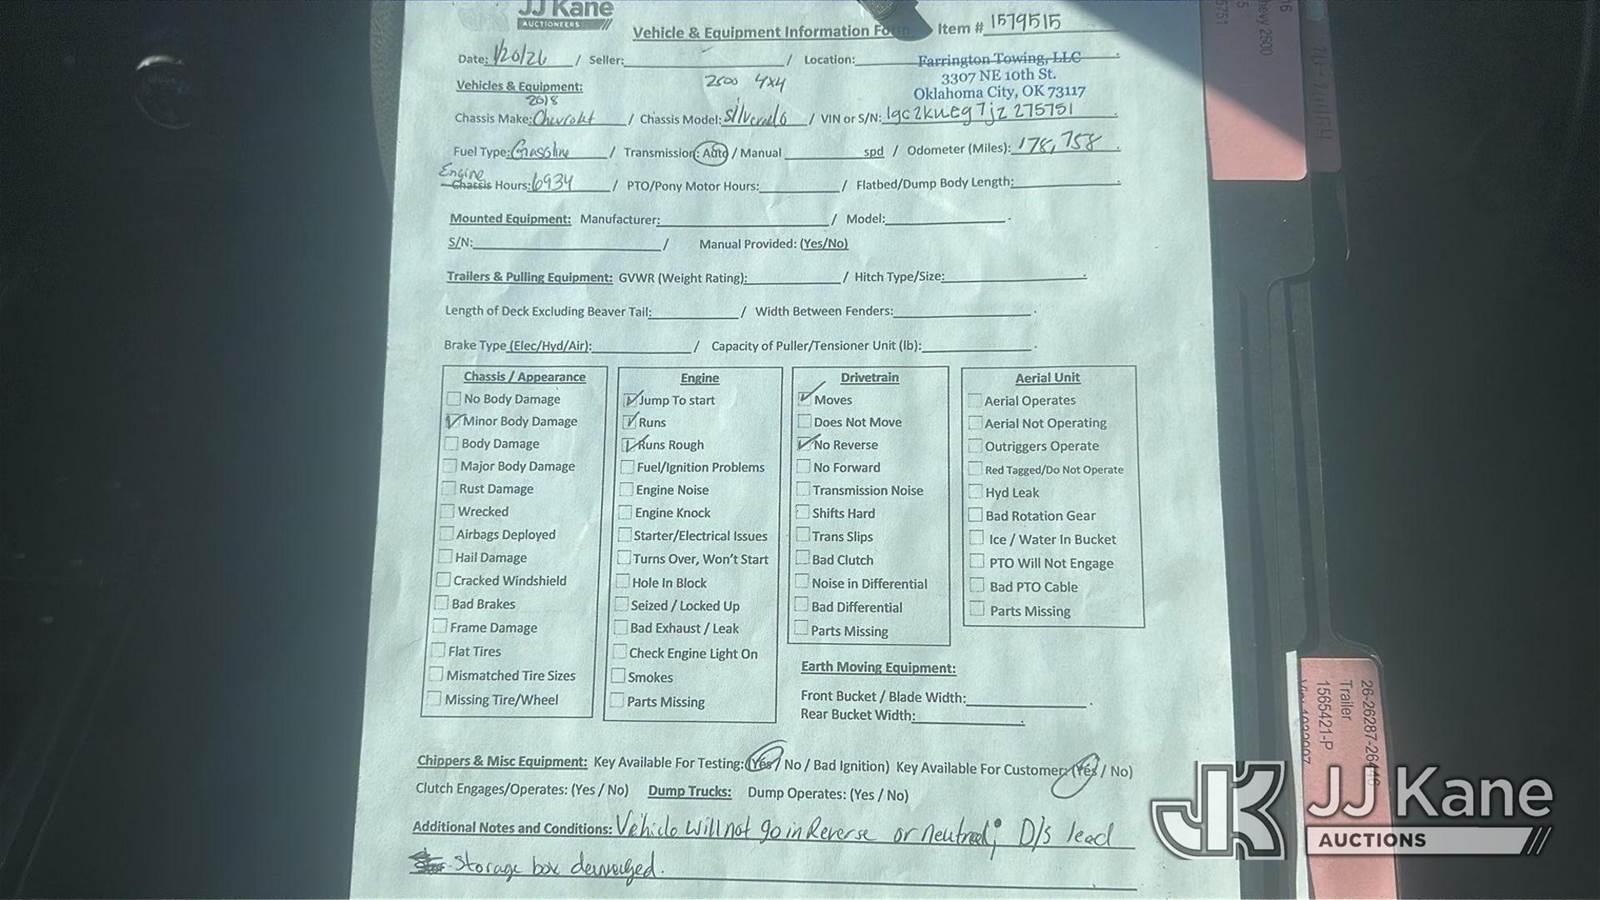 JJ Kane
AUCTIONEERS
Vehicle & Equipment Information Item # 1579515
Date: 1/20/26 / Seller: / Location: Farrington Towing, LLC
3307 NE 10th St.
Oklahoma City, OK 73117
Vehicles & Equipment: 2500 4x4
2018
Chassis Make: Chevrolet / Chassis Model: Silverado / VIN or S/N: 1gc2kueg7jz275751
Fuel Type: Gasoline / Transmission: Auto / Manual spd / Odometer (Miles): 178,758
Engine
Chassis Hours: 6934 / PTO/Pony Motor Hours: / Flatbed/Dump Body Length:
Mounted Equipment: Manufacturer: / Model:
S/N: / Manual Provided: (Yes/No)
Trailers & Pulling Equipment: GVWR (Weight Rating): / Hitch Type/Size:
Length of Deck Excluding Beaver Tail: / Width Between Fenders:
Brake Type (Elec/Hyd/Air): / Capacity of Puller/Tensioner Unit (lb):
Chassis / Appearance
No Body Damage
Minor Body Damage
Body Damage
Major Body Damage
Rust Damage
Wrecked
Airbags Deployed
Hail Damage
Cracked Windshield
Bad Brakes
Frame Damage
Flat Tires
Mismatched Tire Sizes
Missing Tire/Wheel
Engine
Jump To start
Runs
Runs Rough
Fuel/Ignition Problems
Engine Noise
Engine Knock
Starter/Electrical Issues
Turns Over, Won't Start
Hole In Block
Seized / Locked Up
Bad Exhaust / Leak
Check Engine Light On
Smokes
Parts Missing
Drivetrain
Moves
Does Not Move
No Reverse
No Forward
Transmission Noise
Shifts Hard
Trans Slips
Bad Clutch
Noise in Differential
Bad Differential
Parts Missing
Aerial Unit
Aerial Operates
Aerial Not Operating
Outriggers Operate
Red Tagged/Do Not Operate
Hyd Leak
Bad Rotation Gear
Ice / Water In Bucket
PTO Will Not Engage
Bad PTO Cable
Parts Missing
Earth Moving Equipment:
Front Bucket / Blade Width:
Rear Bucket Width:
Chippers & Misc Equipment: Key Available For Testing: (Yes / No / Bad Ignition) Key Available For Customer: (Yes / No)
Clutch Engages/Operates: (Yes / No) Dump Trucks: Dump Operates: (Yes / No)
Additional Notes and Conditions: Vehicle will not go in Reverse or neutral; D/s lead
storage box damaged.
26-26287-26446
Trailer
1565421-P
JJ Kane
AUCTIONS